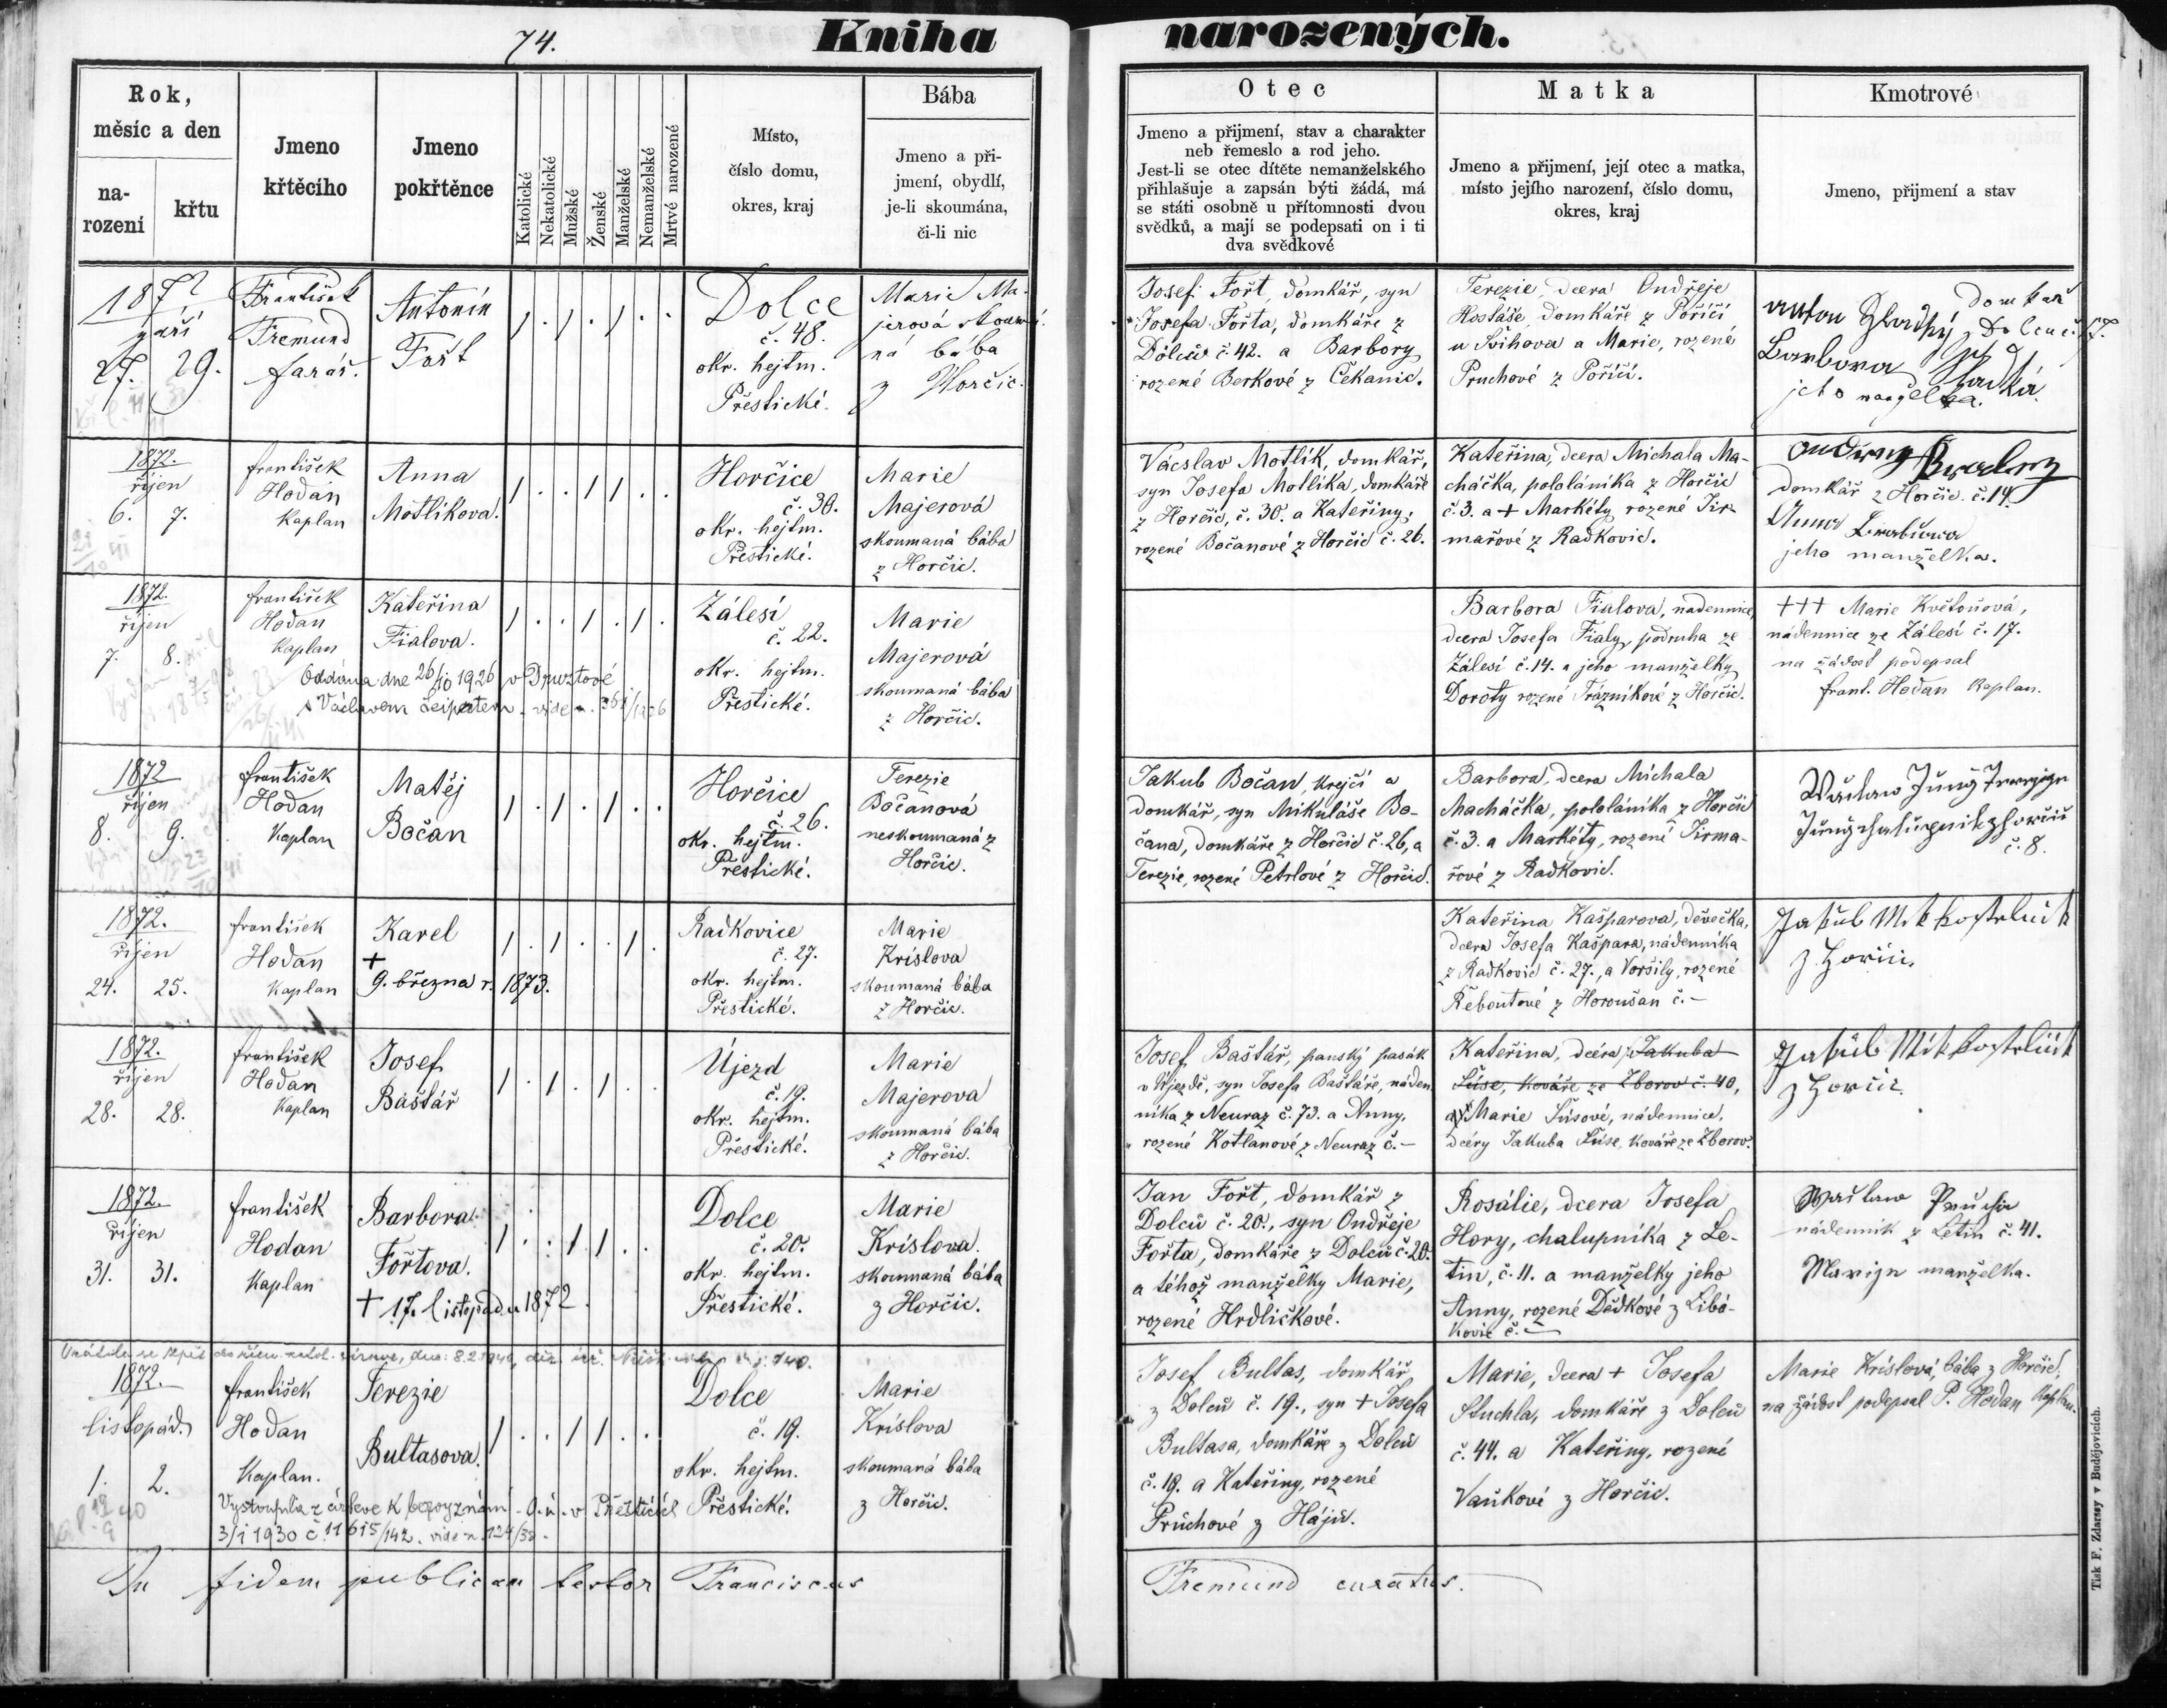 74.
Kniha narozených.
Rok,
měsíc a den
na-
rození
křtu
Jmeno
křtěcího
Jmeno
pokřtěnce
Katolické
Nekatolické
Mužské
Ženské
Manželské
Nemanželské
Mrtvé narozené
Místo,
číslo domu,
okres, kraj
Bába
Jmeno a při-
jmení, obydlí,
je-li skoumána,
či-li nic
Otec
Jmeno a přijmení, stav a charakter
neb řemeslo a rod jeho.
Jest-li se otec dítěte nemanželského
přihlašuje a zapsán býti žádá, má
se státi osobně u přítomnosti dvou
svědků, a mají se podepsati on i ti
dva svědkové
Matka
Jmeno a přijmení, její otec a matka,
místo jejího narození, číslo domu,
okres, kraj
Kmotrové
Jmeno, přijmení a stav
1872
září
27. 29.
František
Fremund
farář.
Antonín
Fořt
1 . 1 . 1 . .
Dolce
č. 48.
okr. hejtm.
Přestické.
Marie Ma-
jerová skoumá-
ná bába
z Horčic.
Josef Fořt, domkář, syn
Josefa Fořta, domkáře z
Dolců č. 42. a Barbory
rozené Berkové z Čekanic.
Terezie, dcera Ondřeje
Hostáše, domkáře z Poříčí
u Švihova a Marie, rozené
Pruchové z Poříčí.
domkář
Anton Hladký z Dolců č. 17.
Barbora Hladká
jeho manželka.
1872.
říjen
6. 7.
František
Hodan
Kaplan
Anna
Motlíkova.
1 . . 1 1 . .
Horčice
č. 30.
okr. hejtm.
Přestické.
Marie
Majerová
skoumaná bába
z Horčic.
Vácslav Motlík, domkář,
syn Josefa Motlíka, domkáře
z Horčic, č. 30. a Kateřiny,
rozené Bočanové z Horčic č. 26.
Kateřina, dcera Michala Ma-
cháčka, pololáníka z Horčic
č. 3. a + Markéty rozené Jir-
mařové z Radkovic.
domkář z Horčic č. 14
Anna
jeho manželka.
1872.
říjen
7. 8.
František
Hodan
Kaplan
Kateřina
Fialova.
1 . . 1 . 1 .
Oddána dne 26/10 1926 v
s Václavem Seipetem. vide n. 361/1926
Zálesí
č. 22.
okr. hejtm.
Přestické.
Marie
Majerová
skoumaná bába
z Horčic.
Barbora Fialova, nadennice,
dcera Josefa Fialy, podruha ze
Zálesí č. 14. a jeho manželky
Doroty rozené Trázníkové z Horčic.
+++ Marie Květoňová,
nádennice ze Zálesí č. 17.
na žádost podepsal
frant. Hodan Kaplan.
1872
říjen
8. 9.
František
Hodan
Kaplan
Matěj
Bočan
1 . 1 . 1 . .
Horčice
č. 26.
okr. hejtm.
Přestické.
Terezie
Bočanová
neskoumaná z
Horčic.
Jakub Bočan, krejčí a
domkář, syn Mikuláše Bo-
čana, domkáře z Horčic č. 26, a
Terezie, rozené Petrlové z Horčic.
Barbora, dcera Michala
Macháčka, pololáníka z Horčic
č. 3. a Markéty, rozené Jirma-
řové z Radkovic.
Wáclaw
č. 8.
1872.
říjen
24. 25.
František
Hodan
Kaplan
Karel
+
9. března r. 1873.
1 . 1 . . 1 .
Radkovice
č. 27.
okr. hejtm.
Přestické.
Marie
Kríslova
skoumaná bába
z Horčic.
Kateřina Kašparova, děvečka,
dcera Josefa Kašpara, nádenníka
z Radkovic č. 27., a Voršily, rozené
Řeboutové z Horoušan č. –
Jakub Mik kostelník
z Horčic.
1872.
říjen
28. 28.
František
Hodan
Kaplan
Josef
Baštář
1 . 1 . 1 . .
Újezd
č. 19.
okr. hejtm.
Přestické.
Marie
Majerova
skoumaná bába
z Horčic.
Josef Baštář, panský pasák
v Újezdě, syn Josefa Baštáře, náden
níka z Neuraz č. 73. a Anny,
rozené Kotlanové z Neuraz č. –
Kateřina, dcera Jakuba
Šúse, kováře ze Zborov č. 40,
Marie Šúsové, nádennice,
dcéry Jakuba Šúse, kováře ze Zborov.
Jakub Mik kostelník
z Horčic
1872.
říjen
31. 31.
František
Hodan
Kaplan
Barbora
Fořtova.
+ 17. listopadu 1872.
1 . . 1 1 . .
Dolce
č. 20.
okr. hejtm.
Přestické.
Marie
Kríslova.
skoumaná bába
z Horčic.
Jan Fořt, domkář z
Dolců č. 20., syn Ondřeje
Fořta, domkáře z Dolců č. 20.
a téhož manželky Marie,
rozené Hrdličkové.
Rosálie, dcera Josefa
Hory, chalupníka z Le-
tin, č. 11. a manželky jeho
Anny, rozené Dědkové z Libá-
kovic č. –
Wáclaw Průcha
nádenník z Letin č. 41.
Marije manželka.
Vrátila se zpět do círk. katol.
1872.
listopad.
1. 2.
František
Hodan
Kaplan.
Terezie
Bultasova.
1 . . 1 1 . .
Vystoupila z církve k bezvyznání O. ú. v Přešticích
3/1 1930 č. 11615/142. vide n. 124/30.
Dolce
č. 19.
okr. hejtm.
Přestické.
Marie
Kríslova
skoumaná bába
z Horčic.
Josef Bultas, domkář,
z Dolců č. 19., syn + Josefa
Bultasa, domkáře z Dolců
č. 19. a Kateřiny, rozené
Průchové z Hájů.
Marie, dcera + Josefa
Stuchla, domkáře z Dolců
č. 44. a Kateřiny, rozené
Vaňkové z Horčic.
Marie Kríslová, bába z Horčic,
na žádost podepsal P. Hodan Kaplan.
In fidem publicam testor Franciscus Fremund curatus.
Tisk F. Zdarssy v Budějovicích.